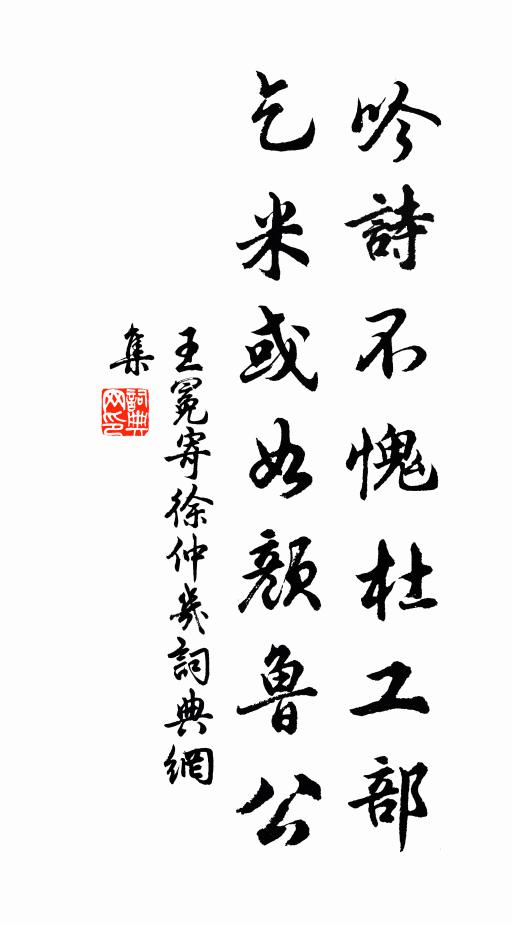 吟詩不愧杜工部
乞米或如顏魯公
王冕寄徐仲幾詞典網
集
詞典
网印